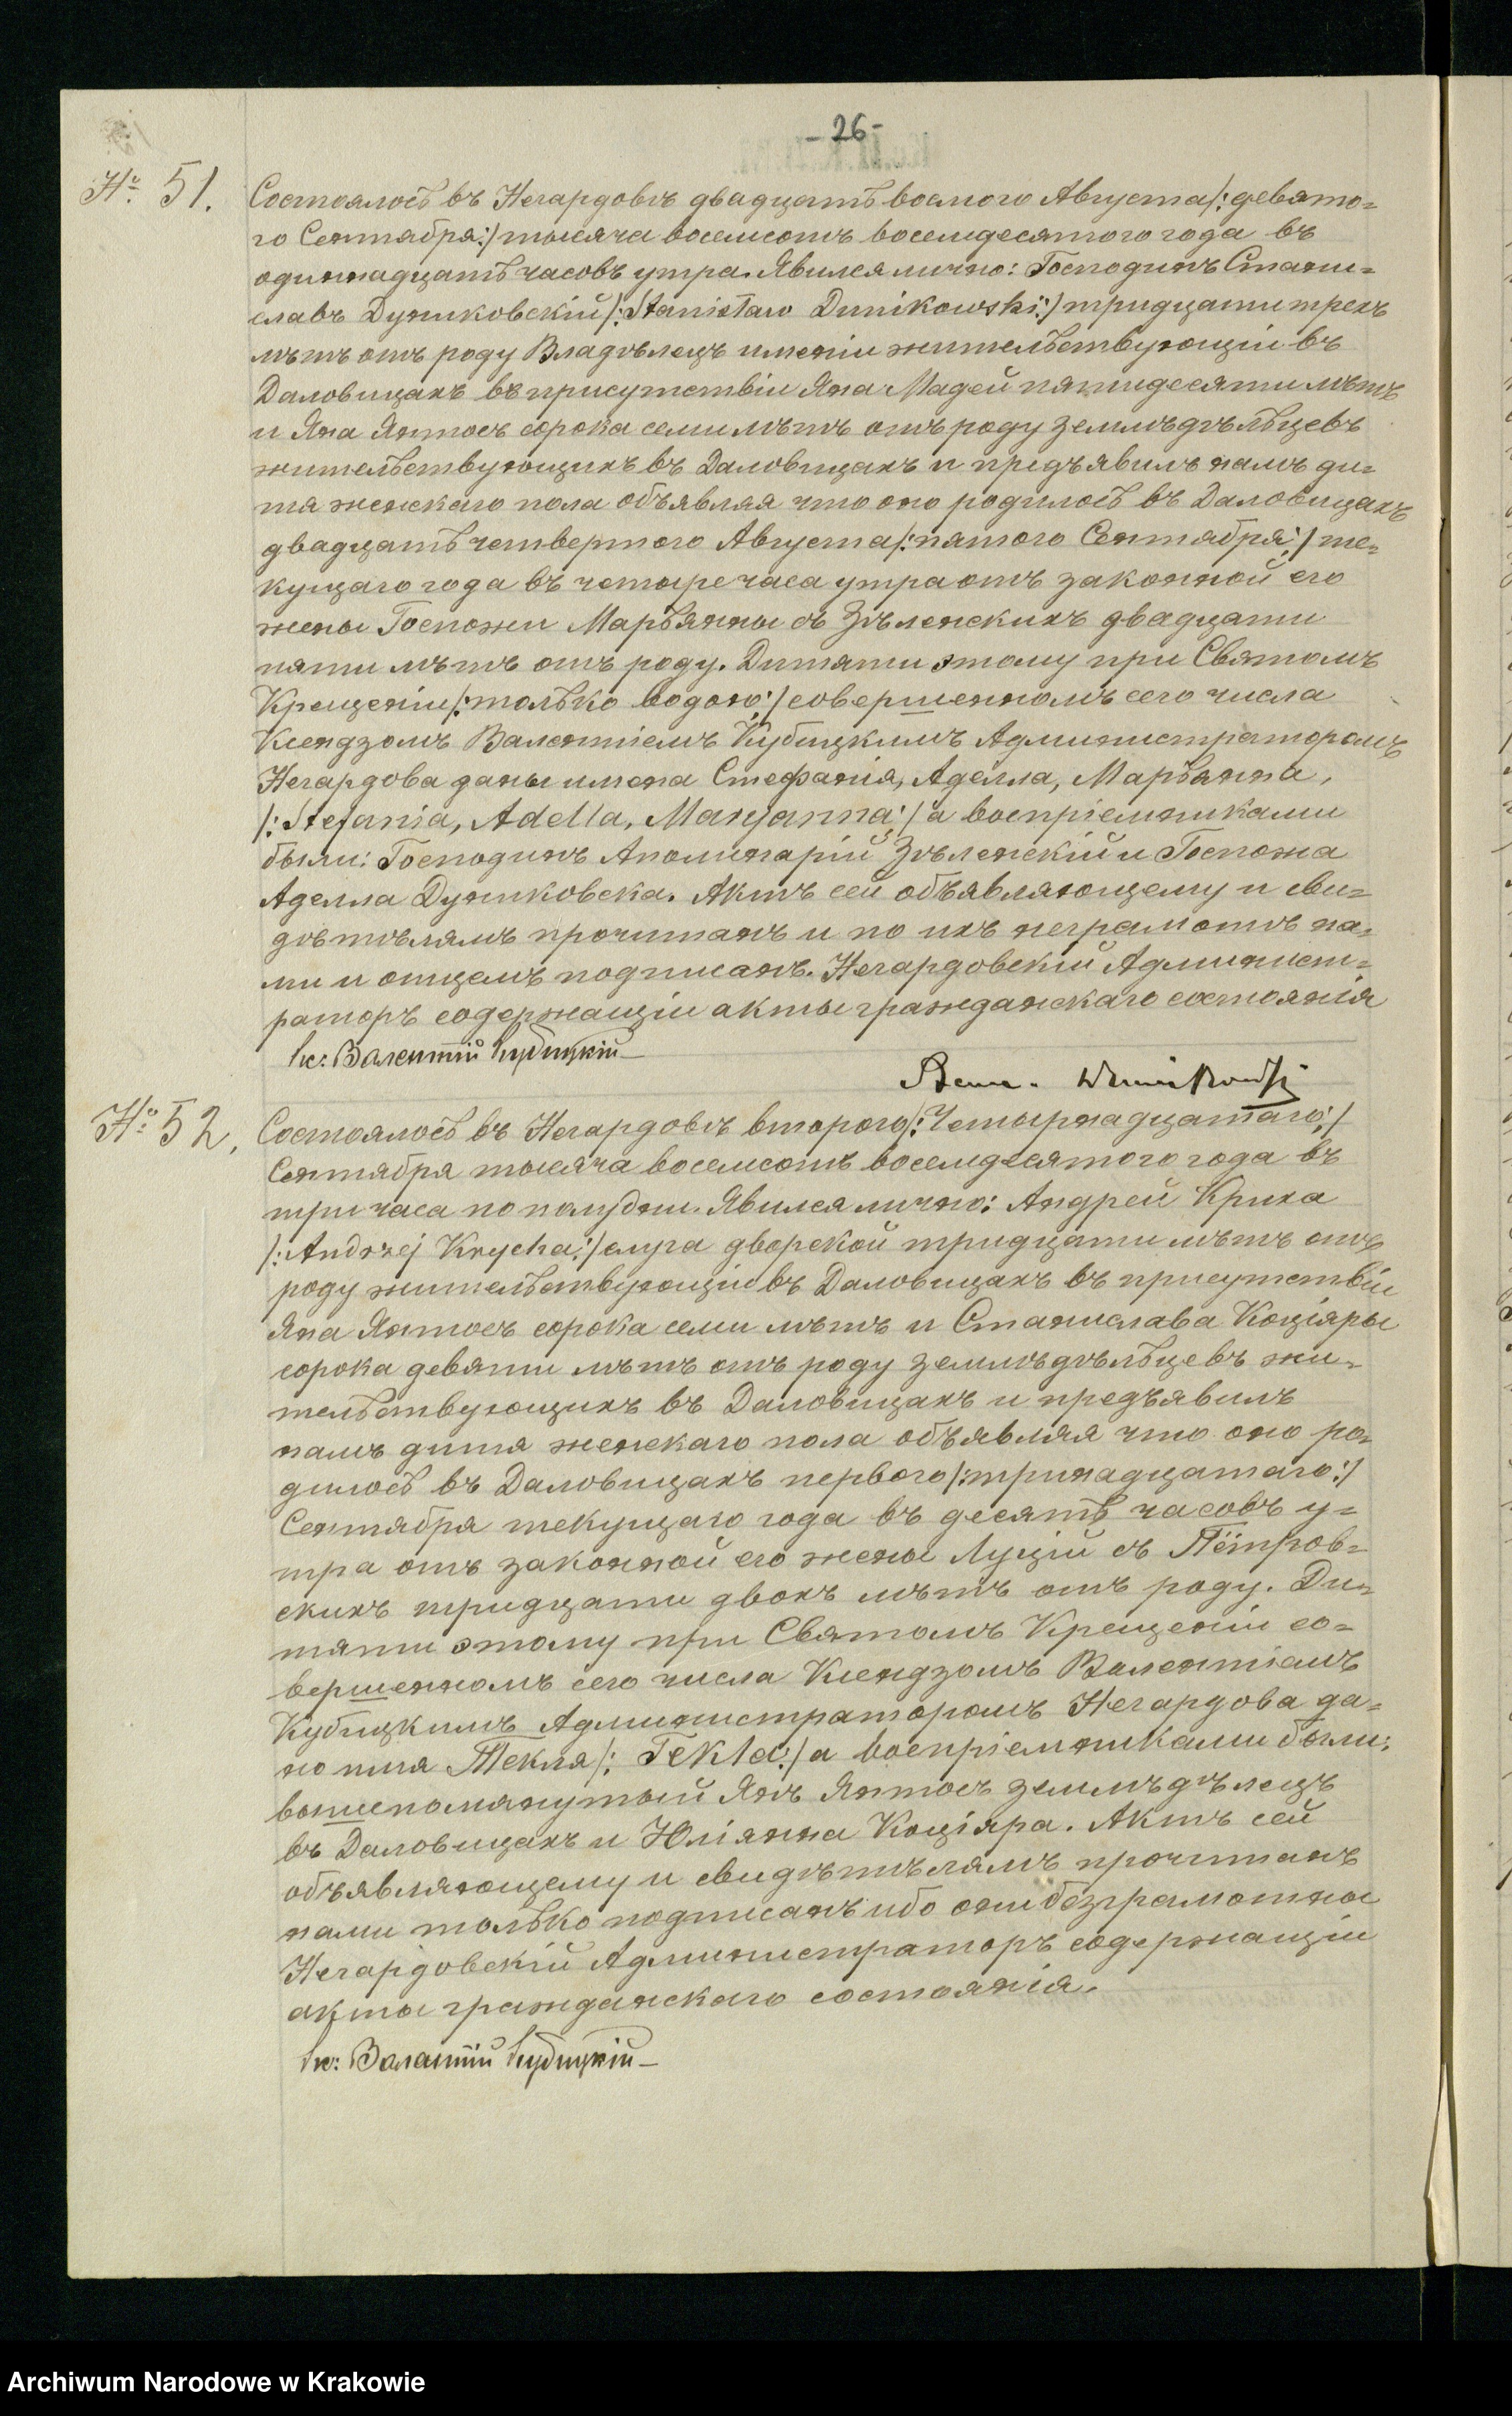 - 26 -
№ 51.
Состоялось въ Негардовѣ двадцать восмого Августа /: девято=
го Сентября :/ тысяча восемсотъ восемдесятого года въ
одиннадцать часовъ утра. Явился лично: Господинъ Стани=
славъ Дуниковскій /: Stanisław Dunikowski :/ тридцати трехъ
лѣтъ отъ роду Владѣлецъ имѣнiи жительствующiи въ
Даловицахъ въ присутствiи Яна Мадей пятидесяти лѣтъ
и Яна Янтосъ сорока семи лѣтъ отъ роду земледѣльцевъ
жительствующихъ въ Даловицахъ и предъявилъ намъ ди=
тя женскаго пола объявляя что оно родилось въ Даловицахъ
двадцать четвертого Августа /: пятого Сентября :/ те=
кущаго года въ четыре часа утра отъ законной его
жены Госпожи Марьянны съ Зѣленскихъ двадцати
пяти лѣтъ отъ роду. Дитяти этому при Святомъ
Крещенiи /: только водою :/ совершенномъ сего числа
Ксендзомъ Валентiемъ Кубицкимъ Администраторомъ
Негардова даны имена Стефанiя, Аделла, Марьянна,
/: Stefania, Adella, Maryanna :/ а воспрiемниками
были: Господинъ Аполинарiй Зѣленскiй и Госпожа
Аделла Дуниковска. Актъ сей объявляющему и сви=
дѣтѣлямъ прочитанъ и по ихъ неграмотѣ на=
ми и отцемъ подписанъ. Негардовскiй Админист=
раторъ содержащiи акты гражданскаго состоянiя
Кс: Валентiй Кубицкiй –
№ 52.
Состоялось въ Негардовѣ второго /: Четырнадцатаго :/
Сентября тысяча восемсотъ восемдесятого года въ
три часа по полудни. Явился лично: Андрей Криха
/: Andrzej Krycha :/ слуга дворской тридцати лѣтъ отъ
роду жительствующiи въ Даловицахъ въ присутствiи
Яна Янтосъ сорока семи лѣтъ и Станислава Коцiяры
сорока девяти лѣтъ отъ роду земледѣльцевъ жи=
тельствующихъ въ Даловицахъ и предъявилъ
намъ дитя женскаго пола объявляя что оно ро=
дилось въ Даловицахъ первого /: тринадцатаго :/
Сентября текущаго года въ десять часовъ у=
тра отъ законной его жены Луцiй съ Пётров=
скихъ тридцати двохъ лѣтъ отъ роду. Ди=
тяти этому при Святомъ Крещенiи со=
вершенномъ сего числа Ксендзомъ Валентiемъ
Кубицкимъ Администраторомъ Негардова да=
но имя Текля /: Tekla :/ а воспрiемниками были:
вышепомянутый Янъ Янтосъ земледѣлецъ
въ Даловицахъ и Юлiянна Коцiяра. Актъ сей
объявляющему и свидѣтѣлямъ прочитанъ
нами только подписанъ ибо они безграмотны
Негардовскiй Администраторъ содержащiи
акты гражданскаго состоянiя.
Кс: Валентiй Кубицкiй –
Archiwum Narodowe w Krakowie